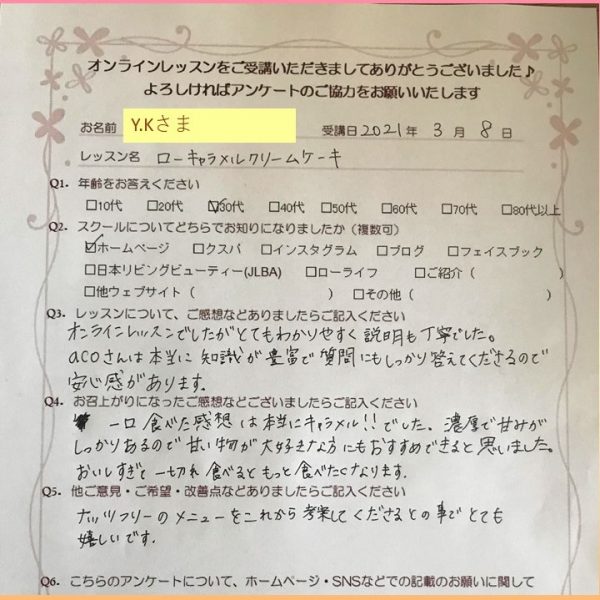 オンラインレッスンをご受講いただきましてありがとうございました♪
よろしければアンケートのご協力をお願いいたします
お名前 Y.Kさま 受講日 2021年 3月 8日
レッスン名 ローキャラメルクリームケーキ
Q1. 年齢をお答えください
□10代 □20代 ☑30代 □40代 □50代 □60代 □70代 □80代以上
Q2. スクールについてどちらでお知りになりましたか（複数可）
☑ホームページ □クスパ □インスタグラム □ブログ □フェイスブック
□日本リビングビューティー(JLBA) □ローライフ □ご紹介（ ）
□他ウェブサイト（ ） □その他（ ）
Q3. レッスンについて、ご感想などありましたらご記入ください
オンラインレッスンでしたがとてもわかりやすく説明も丁寧でした。
acoさんは本当に知識が豊富で質問にもしっかり答えてくださるので
安心感があります。
Q4. お召上がりになったご感想などございましたらご記入ください
一口食べた感想は本当にキャラメル!!でした。濃厚で甘みが
しっかりあるので甘い物が大好きな方にもおすすめできると思いました。
おいしすぎて一切れ食べるともっと食べたくなります。
Q5. 他ご意見・ご希望・改善点などありましたらご記入ください
ナッツフリーのメニューをこれから考案してくださるとの事でとても
嬉しいです。
Q6. こちらのアンケートについて、ホームページ・SNSなどでの記載のお願いに関して